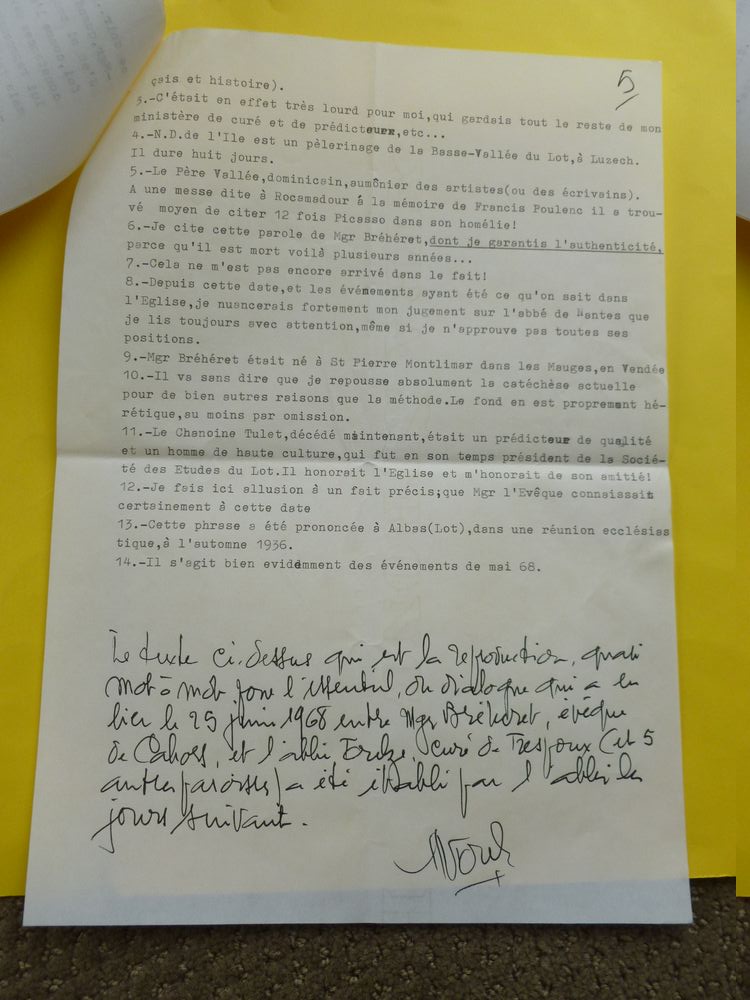 5
çais et histoire).
3.-C'était en effet très lourd pour moi,qui gardais tout le reste de mon
ministère de curé et de prédicteurx,etc...
4.-N.D.de l'Ile est un pèlerinage de la Basse-Vallée du Lot,à Luzech.
Il dure huit jours.
5.-Le Père Vallée,dominicain,aumônier des artistes(ou des écrivains).
A une messe dite à Rocamadour à la mémoire de Francis Poulenc il a trou-
vé moyen de citer 12 fois Picasso dans son homélie!
6.-Je cite cette parole de Mgr Bréhéret,dont je garantis l'authenticité,
parce qu'il est mort voilà plusieurs années...
7.-Cela ne m'est pas encore arrivé dans le fait!
8.-Depuis cette date,et les événements ayant été ce qu'on sait dans
l'Eglise,je nuancerais fortement mon jugement sur l'abbé de Nantes que
je lis toujours avec attention,même si je n'approuve pas toutes ses
positions.
9.-Mgr Bréhéret était né à St Pierre Montlimar dans les Mauges,en Vendée
10.-Il va sans dire que je repousse absolument la catéchèse actuelle
pour de bien autres raisons que la méthode.Le fond en est proprement hé-
rétique,au moins par omission.
11.-Le Chanoine Tulet,décédé maintenant,était un prédicteur de qualité
et un homme de haute culture,qui fut en son temps président de la Socié-
té des Etudes du Lot.Il honorait l'Eglise et m'honorait de son amitié!
12.-Je fais ici allusion à un fait précis;que Mgr l'Evêque connaissait
certainement à cette date
13.-Cette phrase a été prononcée à Albas(Lot),dans une réunion ecclésias
tique,à l'automne 1936.
14.-Il s'agit bien evidemment des événements de mai 68.
Le texte ci-dessus qui est la reproduction, quasi
mot à mot pour l'essentiel, du dialogue qui a eu
lieu le 25 juin 1968 entre Mgr Bréhéret, évêque
de Cahors, et l'abbé curé de Trespoux (et 5
autres paroisses) a été établi par l'abbé les
jours suivant.